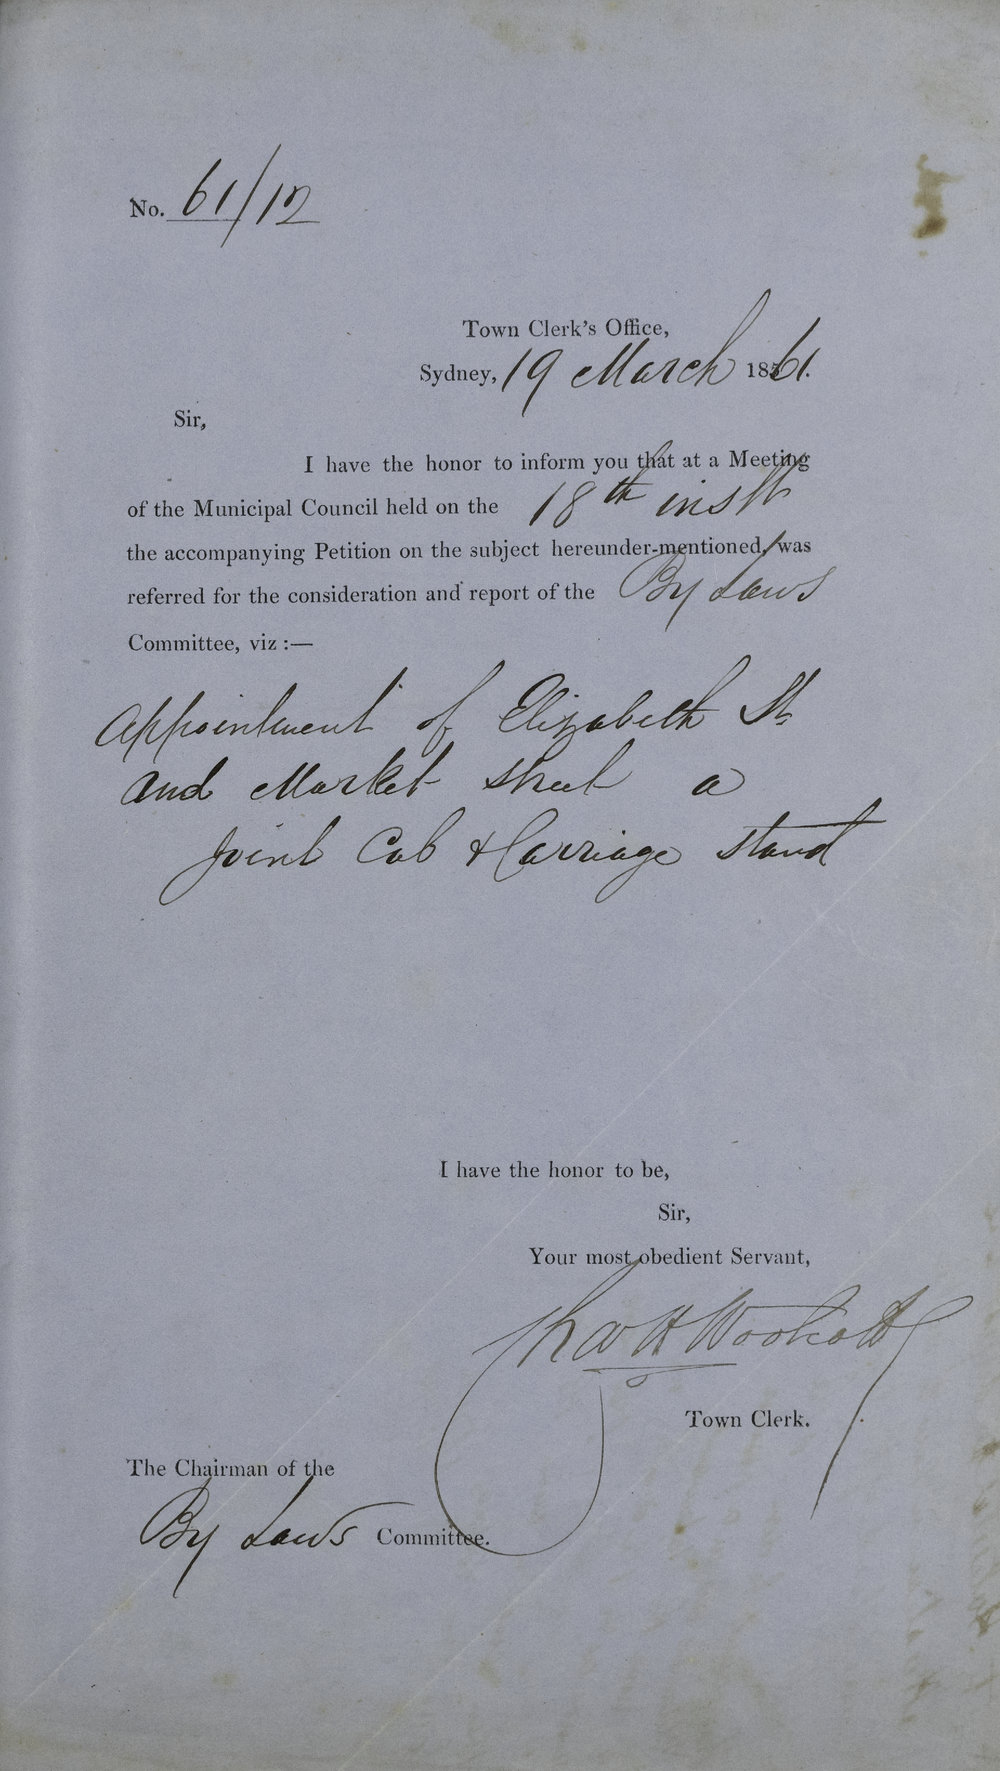 No. 61/12
Town Clerk's Office,
Sydney, 19 March 1861.
Sir,
I have the honor to inform you that at a Meeting
of the Municipal Council held on the 18th inst
the accompanying Petition on the subject hereunder-mentioned, was
referred for the consideration and report of the By Laws
Committee, viz :—
Appointment of Elizabeth St
and Market Street a
Joint Cab & Carriage Stand
I have the honor to be,
Sir,
Your most obedient Servant,
Chas H Woolcott
Town Clerk.
The Chairman of the
By Laws Committee.